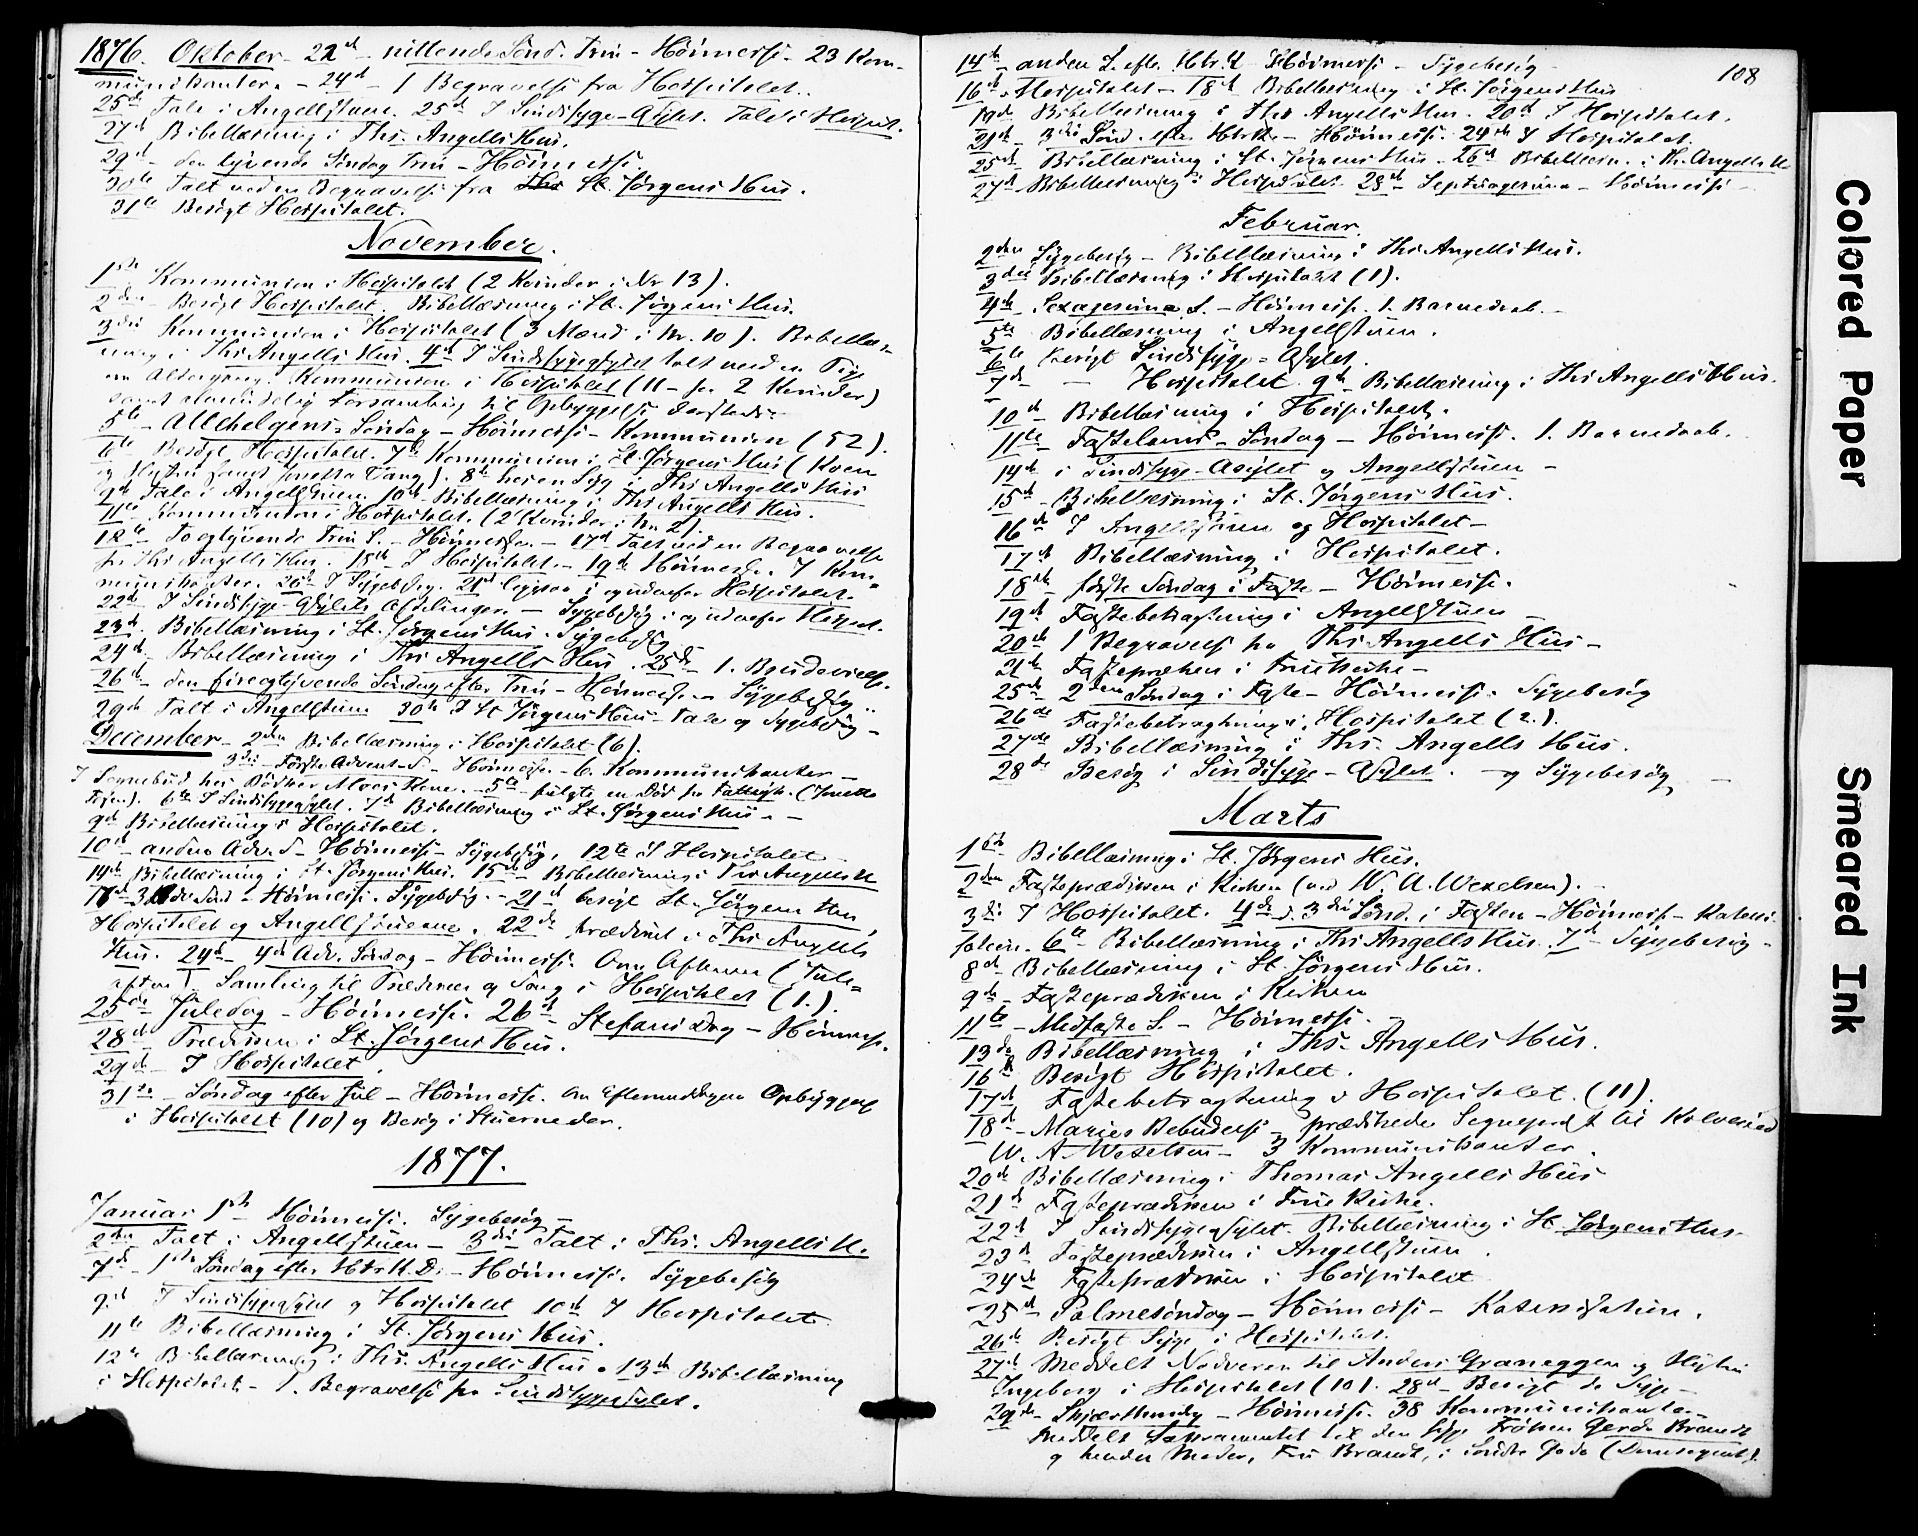 1876. Oktober - 22d - nittende Sönd. Trin - Höimesse - 23 Kom-
munikanter. - 24d - 1 Begravelse fra Hospitalet.
25de Tale i Angellstuen. 25d I Sindssyge-Asylet. Tale i Hospit.
27d Bibellæsning i Ths. Angells Hus.
29d - den tyvende Söndag Trin - Höimesse.
30te Talt ved en Begravelse fra St. Jørgens Hus.
31te Besögt Hospitalet.
November.
1ste Kommunion i Hospitalet (2 Kvinder i Nr 13).
2den Besögt Hospitalet. Bibellæsning i St. Jørgens Hus.
3die Kommunion i Hospitalet (3 Mænd i Nr. 10). Bibellæs-
ning i Ths Angells Hus. 4d I Sindssygeasylet talt med en Syg
om Altergang. Kommunion i Hospitalet (11 - fr. 2 Kvinder)
samt almindelig Forsamling til Opbyggelse dersteds.
5te - Allehelgens Söndag - Höimesse - Kommunion (52).
6te Besögt Hospitalet. 7de Kommunion i St. Jørgens Hus (Kven
8de Ths Angells Hus
9de Tale i Angellstuen. 10de Bibellæsning i Ths Angells Hus.
11te Kommunion i Hospitalet. (2 Kvinder i Nr 2).
12te Toogtyvende Trin S. - Höimesse - 17d Talt ved en Begravelse
fra Ths Angells Hus. 18de I Hospitalet - 19de Höimesse. 7 Kom-
munikanter. 20de I Sygebesög. 21d i og udenfor Hospitalet.
22de I Sindssyge-Asylets Afdelinger - Sygebesög i og udenfor Hospit.
23de. Bibellæsning i St. Jørgens Hus. Sygebesög
24de - Bibellæsning i Ths Angells Hus. 25de 1. Brudevielse.
26de - den fireogtyvende Söndag efter Trin - Höimesse - Sygebesög
29de Talt i Angellstuen 30te I St Jørgens Hus - Tale og Sygebesög -
December - 2den Bibellæsning i Hospitalet (6).
3die - Förste Advent S. - Höimesse - 6. Kommunikanter -
I Sognebud hos Bödker Moes Kone. - 5te fulgte en Död fra Fattigh. (Jonetta
6te I Sindssygeasylet. 7de Bibellæsning i St. Jørgens Hus. -
9de Bibellæsning i Hospitalet.
10de anden Adv. S - Höimesse - Sygebesög. 12te i Hospitalet -
14de Bibellæsning i St. Jørgens Hus. 15de Bibellæsning i Ths Angells H
17de 3die Adv. Sönd - Höimesse. Sygebesög. - 21de besögt St. Jørgens Hus,
Hospitalet og Angellstuerne. 22de prædiket i Ths Angells
Hus. 24de - 4de Adv. Söndag - Höimesse. Om Aftenen (Jule-
aften) Samling til Prædiken og Sang i Hospitalet (1.).
25de Juledag - Höimesse. 26de Stefans Dag - Höimesse.
28de Prædiken i St. Jørgens Hus.
29de - I Hospitalet.
31te. Söndag efter Jul - Höimesse. Om Eftermiddagen Opbyggelse
i Hospitalet (10) og Besög i Stuerneder.
1877.
Januar 1ste Höimesse. Sygebesög -
2den Talt i Angellstuen - 3die Talt i Ths. Angells H.
7de - 1ste Söndag efter H3K.D. - Höimesse. Sygebesög
9de I Sindssygeasylet og Hospitalet 10de I Hospitalet
11te Bibellæsning i St. Jørgens Hus.
12te Bibellæsning i Ths. Angells Hus. 13de Bibellæsning
i Hospitalet - 1. Begravelse fra Sindssygeasylet.
108
14de - anden S. efter H3K - Höimesse - Sygebesög
16de Hospitalet - 18de Bibellæsning i St. Jørgens Hus
19de Bibellæsning i Ths Angells Hus. 20de I Hospitalet.
21de - 3die Sönd. efter H3K - Höimesse. 24de I Hospitalet.
25de Bibellæsning i St. Jørgens Hus. 26de Bibellæsn. i Th. Angells H.
27de Bibellæsning i Hospitalet. 28de Septuagesima - Höimesse -
Februar.
2den Sygebesög - Bibellæsning i Ths Angells Hus.
3die Bibellæsning i Hospitalet (1).
4de Sexagesima S. - Höimesse. 1. Barnedaab. -
5te Bibellæsning i Angellstuen.
6te besögt Sindssyge-Asylet.
7de - Hospitalet. 9de Bibellæsning i Ths Angells Hus.
10de Bibellæsning i Hospitalet.
11te Fastelavns-Söndag - Höimesse. 1. Barnedaab.
14de i Sindssyge-Asylet og Angellstuen -
15de - Bibellæsning i St. Jørgens Hus.
16de I Angellstuen og Hospitalet -
17de Bibellæsning i Hospitalet.
18de förste Söndag i Faste - Höimesse.
19de Fastebetragtning i Angellstuen -
20de 1 Begravelse fra Ths. Angells Hus -
21de Fastepræken i Fruekirke -
25de 2den Söndag i Faste - Höimesse. Sygebesög
26de Fastebetragtning i Hospitalet (2.).
27de Bibellæsning i Ths. Angells Hus.
28de Besög i Sindssyge-Asylet. - og Sygebesög. -
Marts
1ste Bibellæsning i St. Jørgens Hus.
2den Fasteprædiken i Kirken (ved W. A. Wexelsen). -
3die I Hospitalet. 4de 3die Sönd. i Fasten - Höimesse - Katekis.
6te Bibellæsning i Ths Angells Hus. 7de Sygebesög -
8de Bibellæsning i St. Jørgens Hus.
9de - Fasteprædiken i Kirken
11te - Midfaste S. - Höimesse. -
13de Bibellæsning i Ths. Angells Hus.
16de Besögt Hospitalet.
17de Fastebetragtning i Hospitalet. (11).
18de - Mariæ Bebudelse - prædikede Sognepræst til Kolvereid
W. A. Wexelsen - 3 Kommunikanter.
20de Bibellæsning i Thomas Angells Hus
21de Fasteprædiken i Frue Kirke.
22de I Sindssygeasylet. Bibellæsning i St. Jørgens Hus
23de Fasteprædiken i Angellstuen.
24de Fasteprædiken i Hospitalet
25de Palmesöndag - Höimesse - Katekisation.
26de Besögt Syge i Hospitalet.
27de Meddelt Nadveren til Anders Græneggen og Hustru
Ingeborg i Hospitalet (10). 28de Besögt de Syge -
29de - Skjærthorsdag - Höimesse. 38 Kommunikanter -
Meddelt Sakramentet til den syge Fröken Gerda Brandt
og hendes Moder, Fru Brandt, i Söndre Gade